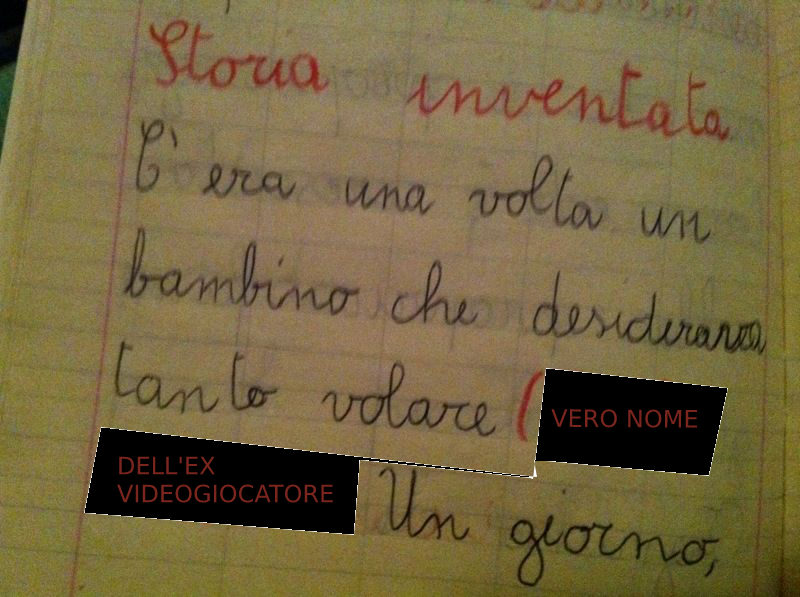 Storia inventata
C'era una volta un
bambino che desiderava
tanto volare (VERO NOME
DELL'EX
VIDEOGIOCATORE
Un giorno,